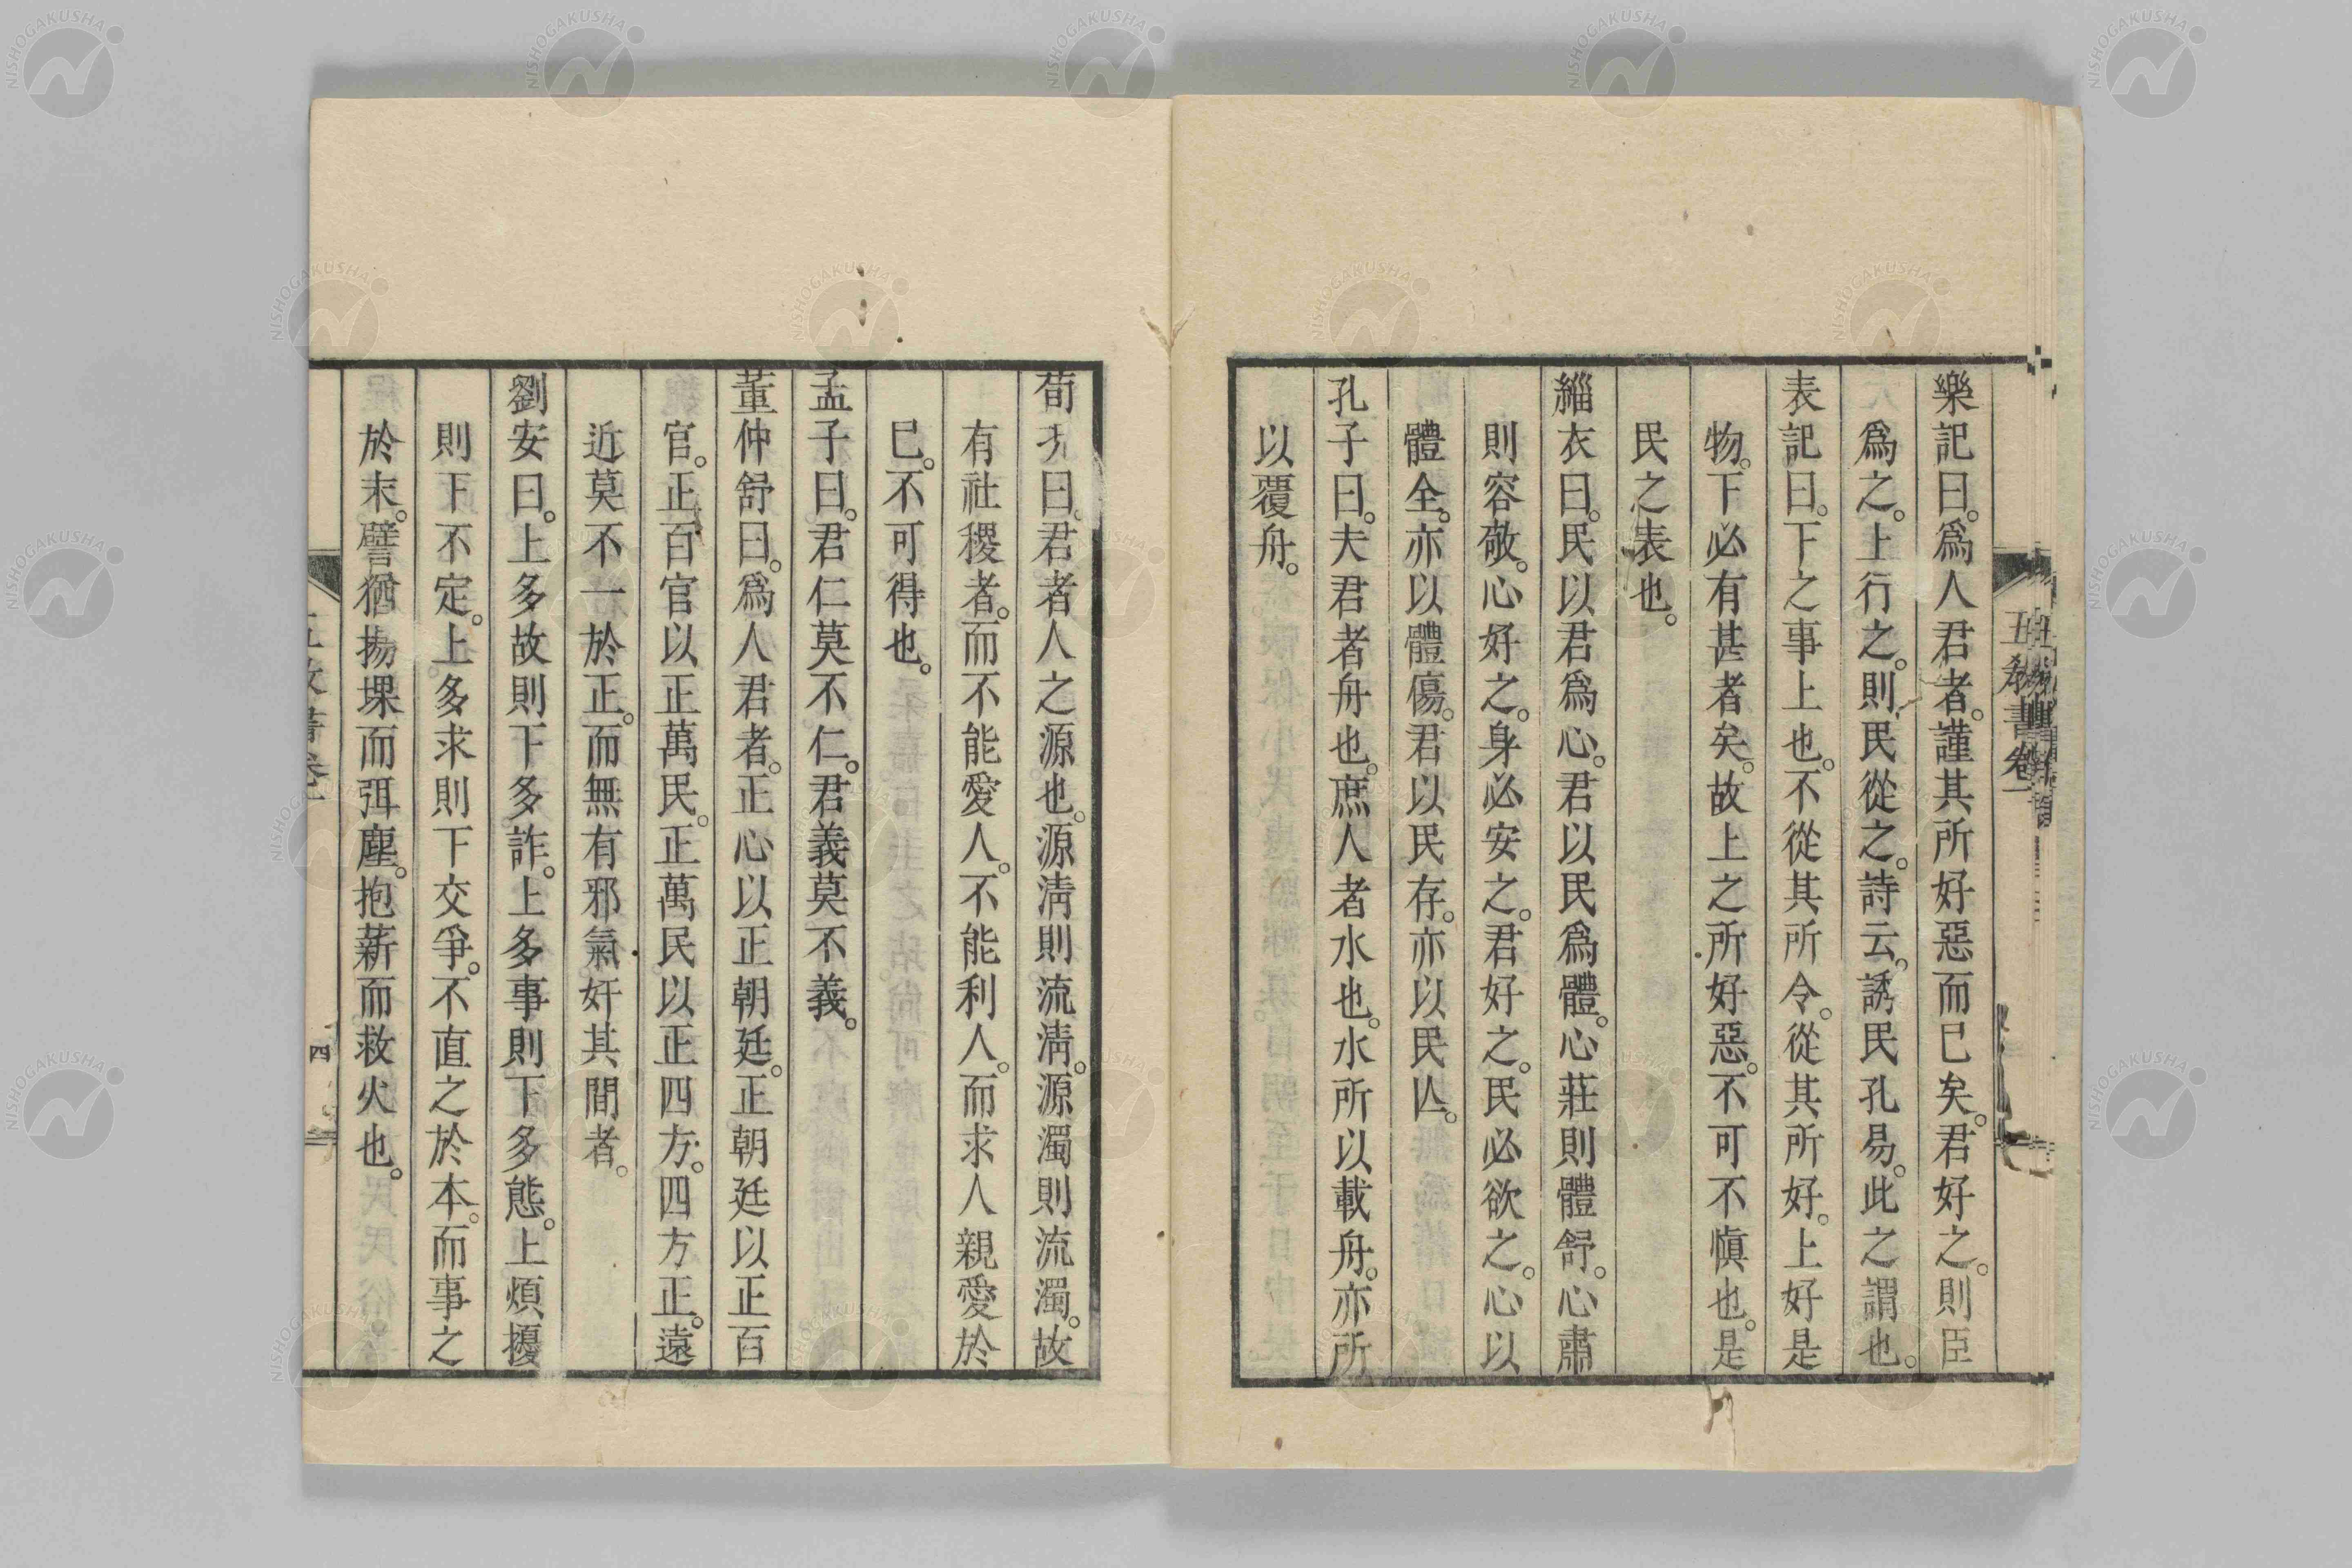 樂記曰。爲人君者。謹其所好惡而已矣。君好之。則臣
爲之。上行之。則民從之。詩云。誘民孔易。此之謂也。
表記曰。下之事上也。不從其所令。從其所好。上好是
物。下必有甚者矣。故上之所好惡。不可不愼也。是
民之表也。
緇衣曰。民以君爲心。君以民爲體。心莊則體舒。心肅
則容敬。心好之。身必安之。君好之。民必欲之。心以
體全。亦以體傷。君以民存。亦以民亾。
孔子曰。夫君者舟也。庶人者水也。水所以載舟。亦所
以覆舟。
荀子曰。君者人之源也。源淸則流淸。源濁則流濁。故
有社稷者。而不能愛人。不能利人。而求人親愛於
已。不可得也。
孟子曰。君仁莫不仁。君義莫不義。
董仲舒曰。爲人君者。正心以正朝廷。正朝廷以正百
官。正百官以正萬民。正萬民以正四方。四方正。遠
近莫不一於正。而無有邪氣奸其間者。
劉安曰。上多故則下多詐。上多事則下多態。上煩擾
則下不定。上多求則下交爭。不直之於本。而事之
於末。譬猶揚堁而弭塵。抱薪而救火也。
四
NISHOGAKUSHA